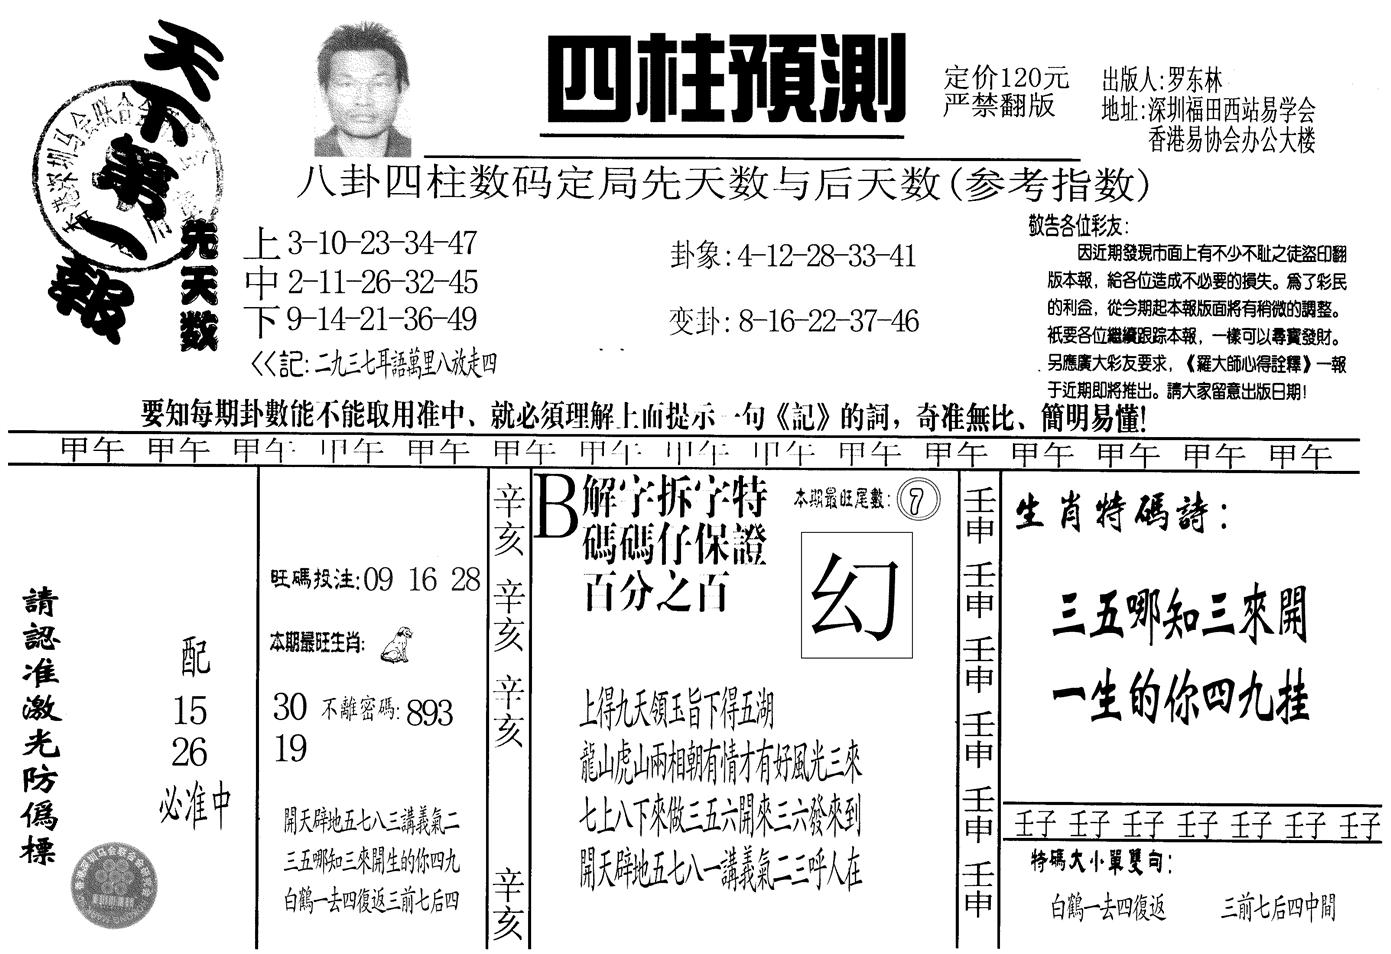 天下第一報
四柱預測
定价120元
严禁翻版
出版人:罗东林
地址:深圳福田西站易学会
香港易协会办公大楼
八卦四柱数码定局先天数与后天数(参考指数)
先天数
上 3-10-23-34-47
中 2-11-26-32-45
下 9-14-21-36-49
<<記:二九三七耳語萬里八放走四
卦象:4-12-28-33-41
变卦:8-16-22-37-46
敬告各位彩友:
因近期發現市面上有不少不耻之徒盜印翻
版本報，給各位造成不必要的損失。為了彩民
的利益，從今期起本報版面將有稍微的調整。
衹要各位繼續跟踪本報，一樣可以尋寶發財。
另應廣大彩友要求，《羅大師心得詮釋》一報
于近期即將推出。請大家留意出版日期!
要知每期卦數能不能取用准中、就必須理解上面提示一句《記》的詞，奇准無比、簡明易懂!
甲午 甲午 甲午 甲午 甲午 甲午 甲午 甲午 甲午 甲午 甲午 甲午 甲午 甲午 甲午
請認准激光防僞標
配
15
26
必准中
旺碼投注:09 16 28
本期最旺生肖:
30 不離密碼:893
19
開天辟地五七八三講義氣二
三五哪知三來開生的你四九
白鶴一去四復返三前七后四
辛亥 辛亥 辛亥 辛亥
B解字拆字特
碼碼仔保證
百分之百
本期最旺尾數:7
幻
上得九天領玉旨下得五湖
龍山虎山兩相朝有情才有好風光三來
七上八下來做三五六開來三六發來到
開天辟地五七八一講義氣二三呼人在
壬申 壬申 壬申 壬申 壬申 壬申
生肖特碼詩:
三五哪知三來開
一生的你四九挂
壬子 壬子 壬子 壬子 壬子 壬子 壬子
特碼大小單雙句:
白鶴一去四復返 三前七后四中間